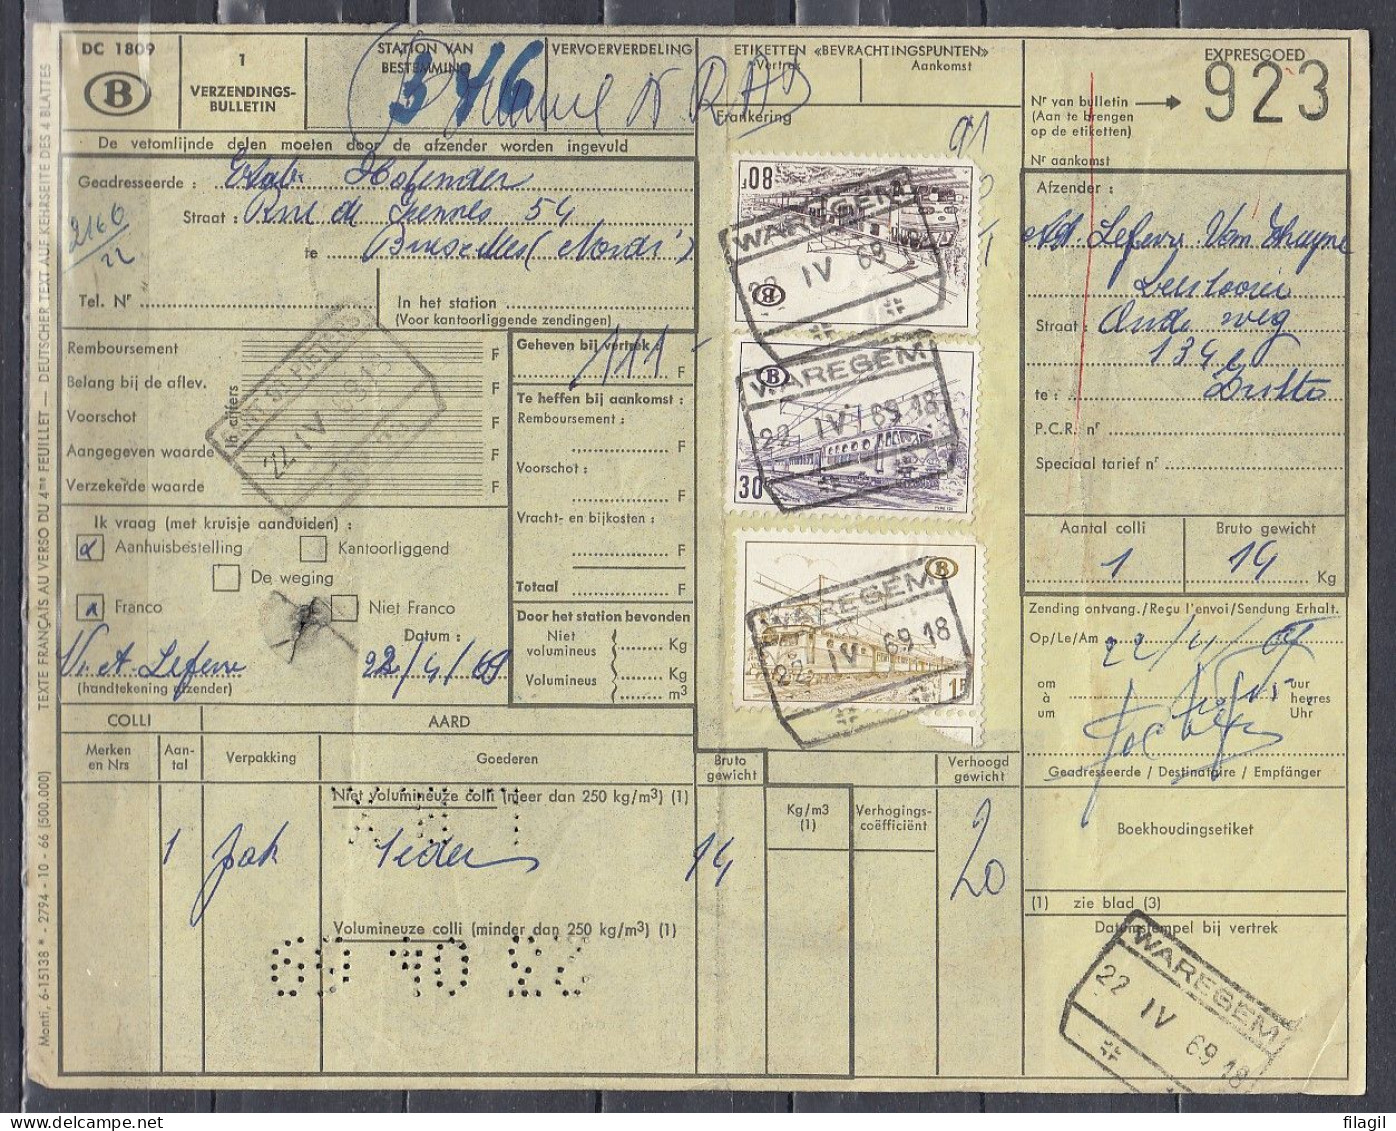 DC 1809
B
1
VERZENDINGS-
BULLETIN
STATION VAN
BESTEMMING
346
VERVOERVERDELING
N. RAD
ETIKETTEN «BEVRACHTINGSPUNTEN»
Vertrek Aankomst
Frankering
91
EXPRESGOED
923
Nr van bulletin
(Aan te brengen
op de etiketten)
Nr aankomst
De vetomlijnde delen moeten door de afzender worden ingevuld
Geadresseerde : Etabl Hofender
Straat : Rue de 54
te Bruxelles (Nord)
2166
22
Tel. Nr
In het station
(Voor kantoorliggende zendingen)
Afzender :
Lefevre Van
Straat: Oude weg
134
te :
P.C.R. nr
Speciaal tarief nr
Remboursement F
Belang bij de aflev. F
Voorschot F
Aangegeven waarde F
Verzekerde waarde F
In cijfers
SINT PIETERS
22 IV 69 18
Geheven bij vertrek
111 - F
Te heffen bij aankomst :
Remboursement :
F
Voorschot :
F
Vracht- en bijkosten :
F
Totaal F
80F
B
WAREGEM
22 IV 69 18
B
30
WAREGEM
22 IV 69 18
B
15
WAREGEM
22 IV 69 18
Ik vraag (met kruisje aanduiden) :
Aanhuisbestelling
Kantoorliggend
De weging
Franco
Niet Franco
Datum :
A. Lefevre 22/4/69
(handtekening afzender)
Door het station bevonden
Niet
volumineus Kg
Volumineus Kg
m3
Aantal colli Bruto gewicht
1 19 Kg
Zending ontvang./Reçu l'envoi/Sendung Erhalt.
Op/Le/Am 22/4/69
om
à
um
uur
heures
Uhr
Geadresseerde / Destinataire / Empfänger
Boekhoudingsetiket
(1) zie blad (3)
Datumstempel bij vertrek
WAREGEM
22 IV 69 18
COLLI AARD
Merken
en Nrs
Aan-
tal
Verpakking
Goederen
Bruto
gewicht
Verhoogd
gewicht
Niet volumineuze colli (meer dan 250 kg/m3) (1)
Kg/m3
(1)
Verhogings-
coëfficiënt
1 pak 19 20
Volumineuze colli (minder dan 250 kg/m3) (1)
Monti, 6-15138 * - 2794 - 10 - 66 (500.000) TEXTE FRANÇAIS AU VERSO DU 4me FEUILLET — DEUTSCHER TEXT AUF KEHRSEITE DES 4 BLATTES
filagil